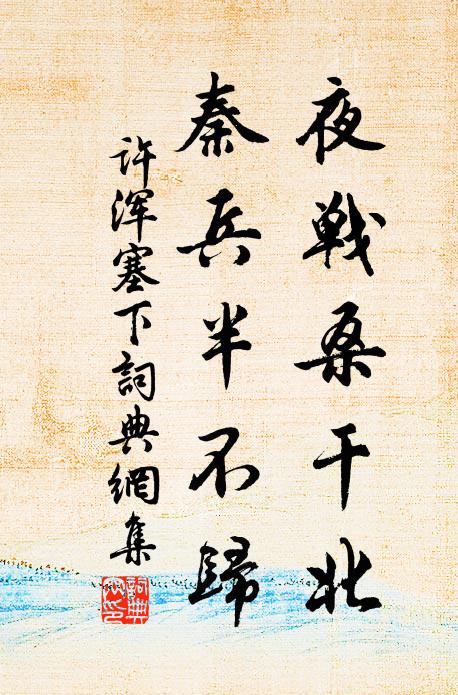 夜戦桑干北
秦兵半不歸
许浑塞下詞典網集